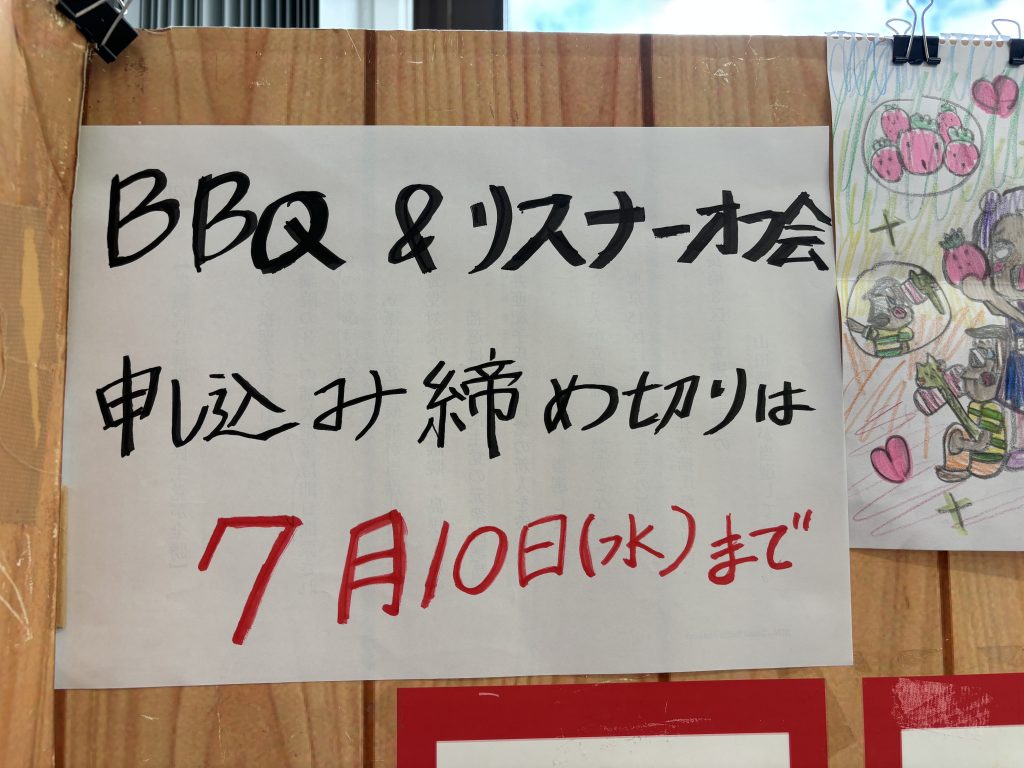 BBQ & リスナーオフ会
申し込み締め切りは
7月10日(水)まで